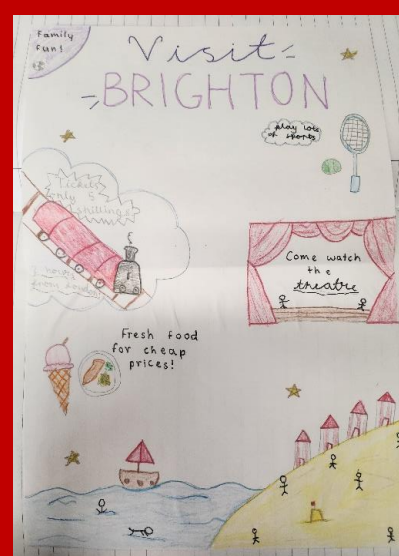 Family
fun!
Visit
BRIGHTON
play lots
of sports
Tickets
only 5
shillings
Come watch
the
theatre
Fresh food
for cheap
prices!